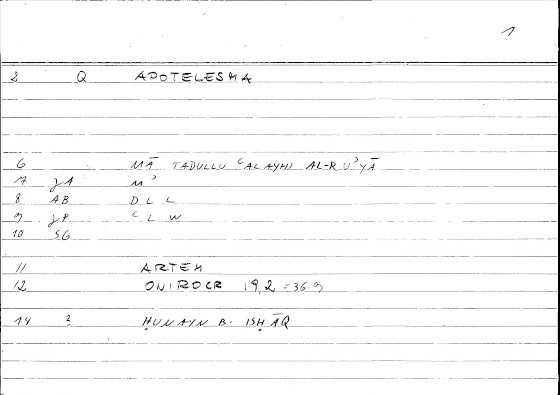 1
2 Q APOTELESMA
6 MĀ TADULLU ʿALAYHI AL-RUʾYĀ
7 JA Mʾ
8 AB D L L
9 JP ʿ L W
10 SG
11 ARTEM
12 ONIROCR 19,2 = 36.9
14 ? ḤUNAYN B. ISḤĀQ